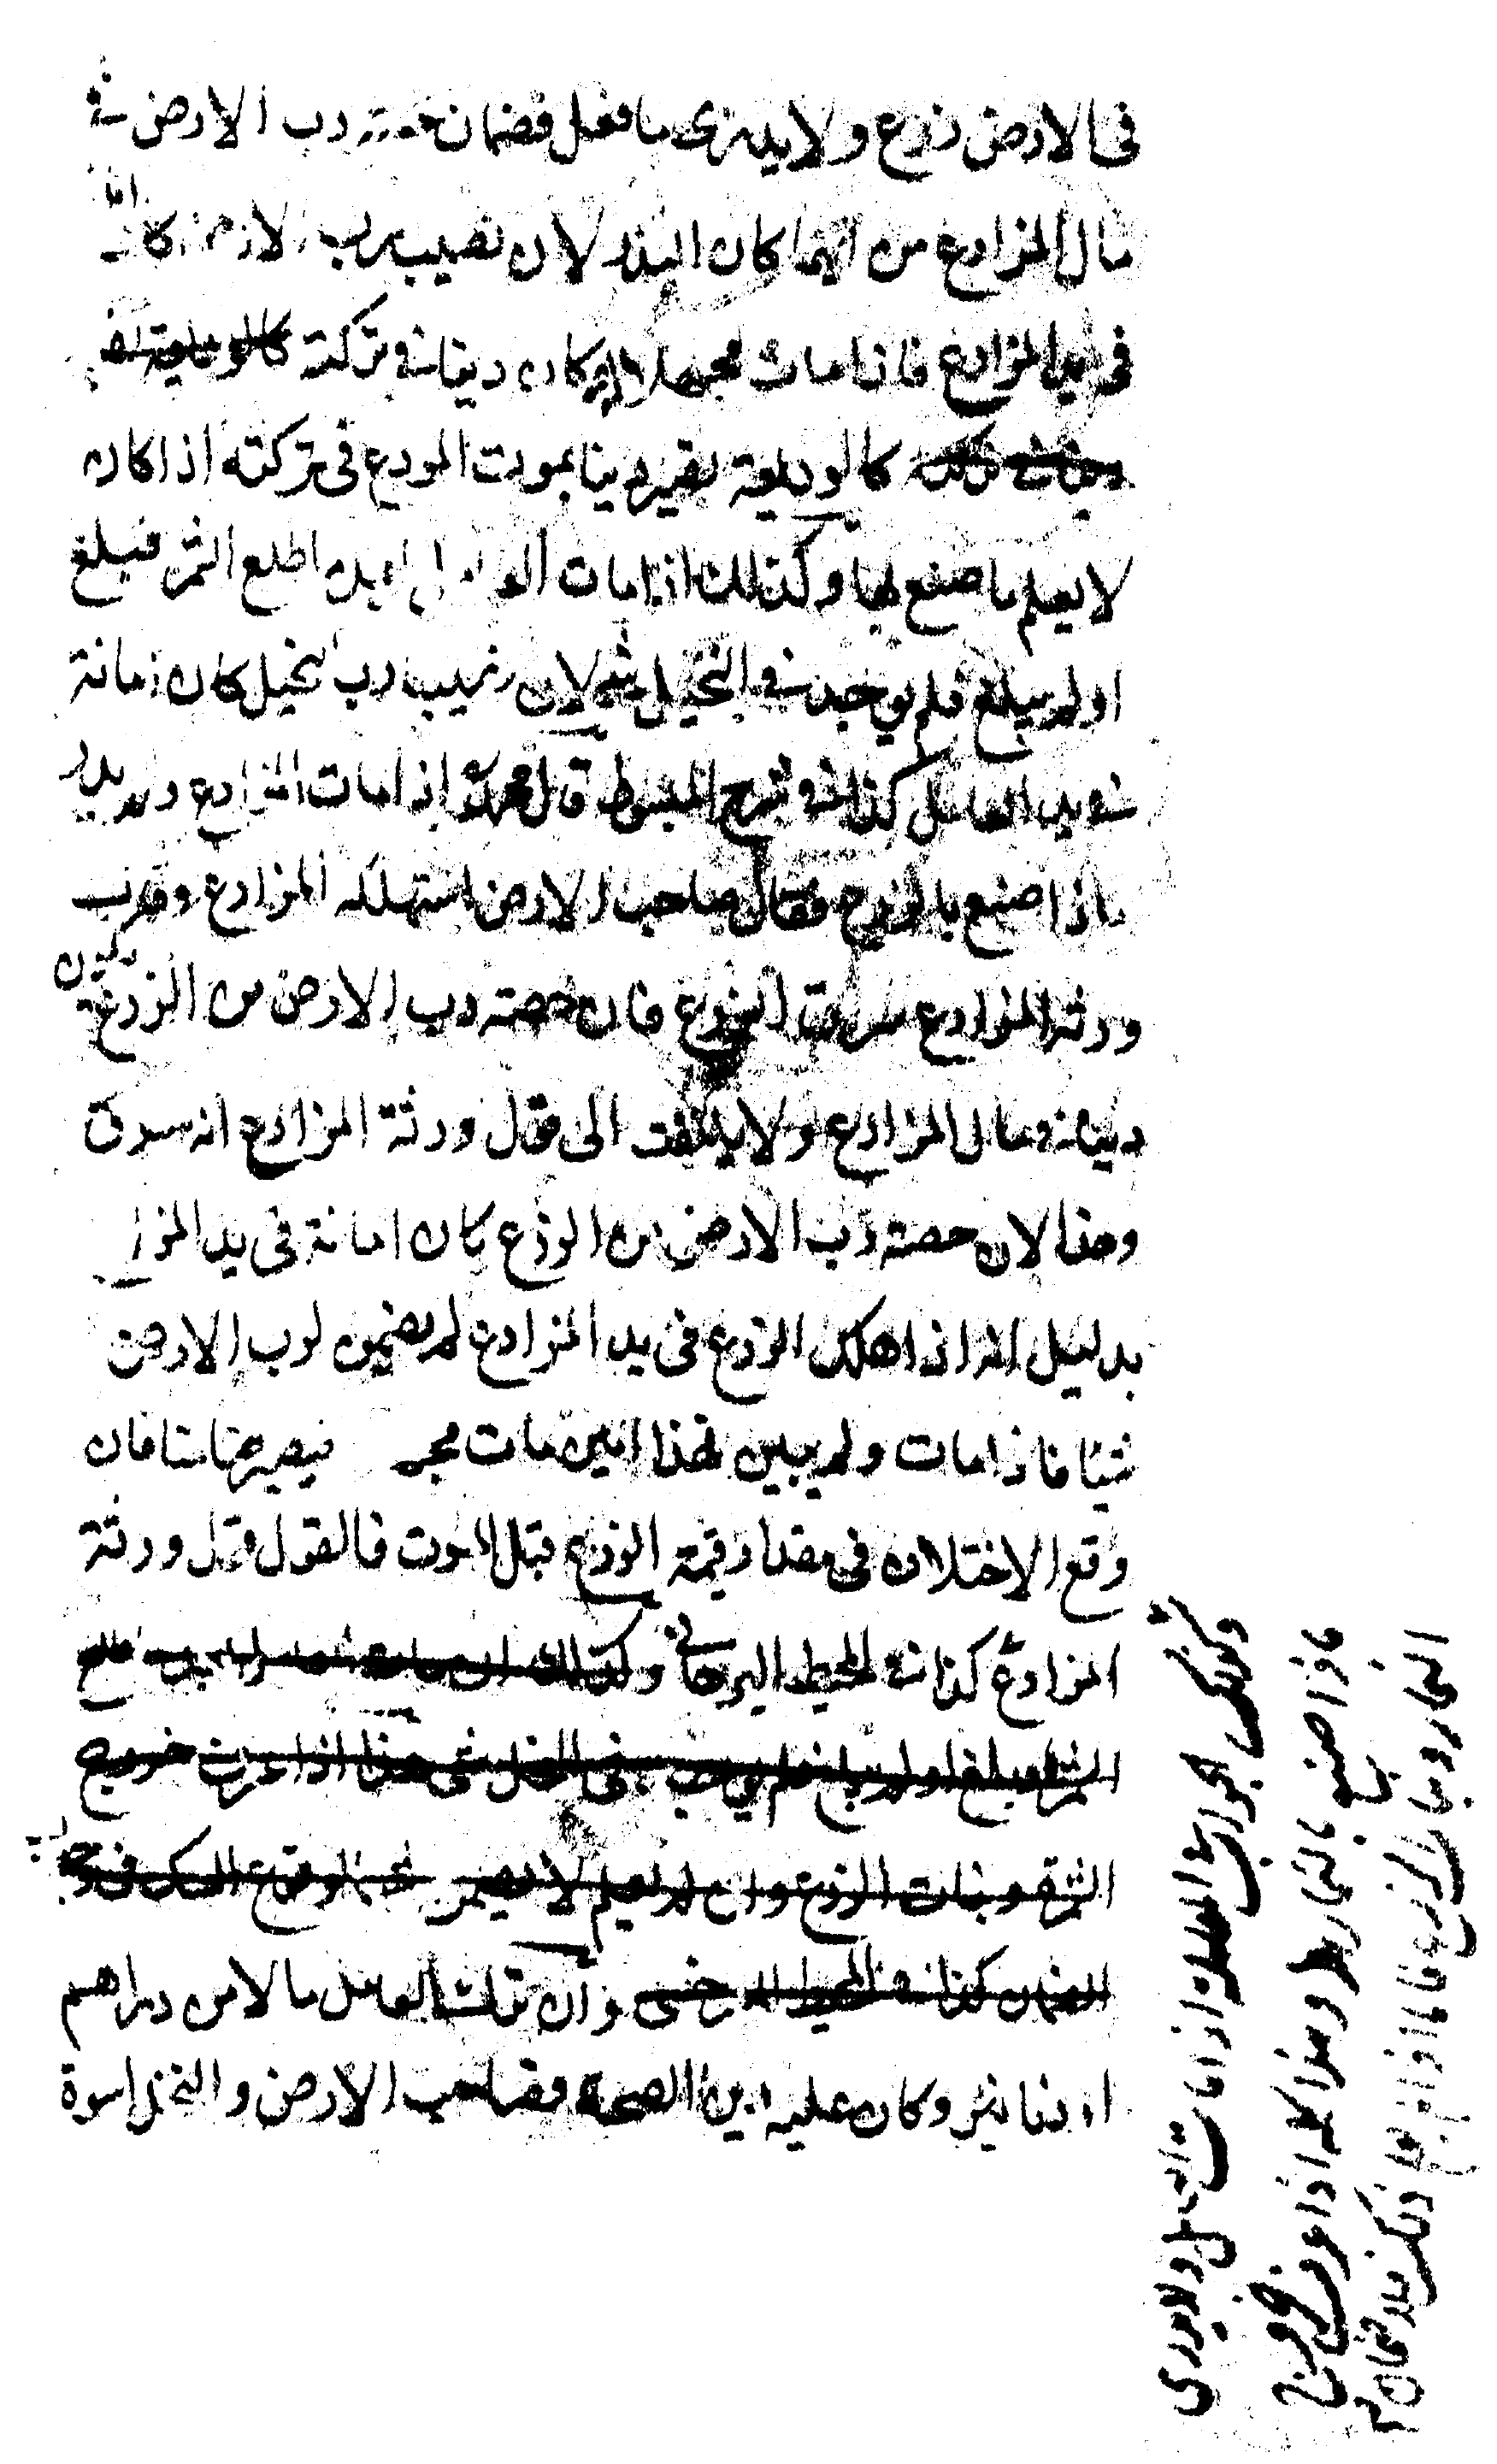 في الارض زرع ولا يدرى ما فعل فضمان حصته رب الارض في
مال المزارع من ايهما كان البذر لان نصيب رب الارض كان امانة
في يد المزارع فاذا مات مجهلا له كان دينا في تركته كالوديعة
دينا في تركته كالوديعة تصير دينا بموت المودع في تركته اذا كان
لا يعلم ما صنع بها وكذلك اذا مات العامل بعد ما طلع الثمر فبلغ
او لم يبلغ فلم يوجد في النخيل شئ لان نصيب رب النخيل كان امانة
في يد العامل كذا في شرح المبسوط قال محمد اذا مات المزارع ولم يدر
ماذا صنع بالزرع فقال صاحب الارض استهلكه المزارع وقالت
ورثة المزارع سرق الزرع فان حصته رب الارض من الزرع يكون
دينا في مال المزارع ولا يلتفت الى قول ورثة المزارع انه سرق
وهذا لان حصته رب الارض من الزرع كان امانة في يد المزارع
بدليل انه اذا هلك الزرع في يد المزارع لم يضمن لرب الارض
شيئا فاذا مات ولم يبين فهذا امين مات مجهلا فيصير ضامنا فان
وقع الاختلاف في مقدار قيمة الزرع قبل الموت فالقول قول ورثة
المزارع كذا في المحيط البرهاني وكذلك ان مات العامل بعد ما طلع
الثمر فبلغ او لم يبلغ فلم يوجد في النخل شئ هذا اذا عرف خروج
الثمرة ونبات الزرع وان لم يعلم لا يضمن لوقوع الشك في وجوب
الضمان كذا في المحيط السرخسي وان ترك العامل مالا من دراهم
او دنانير وكان عليه دين الصحة فصاحب الارض والنخل اسوة
وكذلك جواب المعاملة اذا مات العامل ولا يدرى
ماذا صنع بالخارج وهذا كله اذا عرف خروج
الخارج ونبات الزرع فاما اذا لم يعلم ذلك